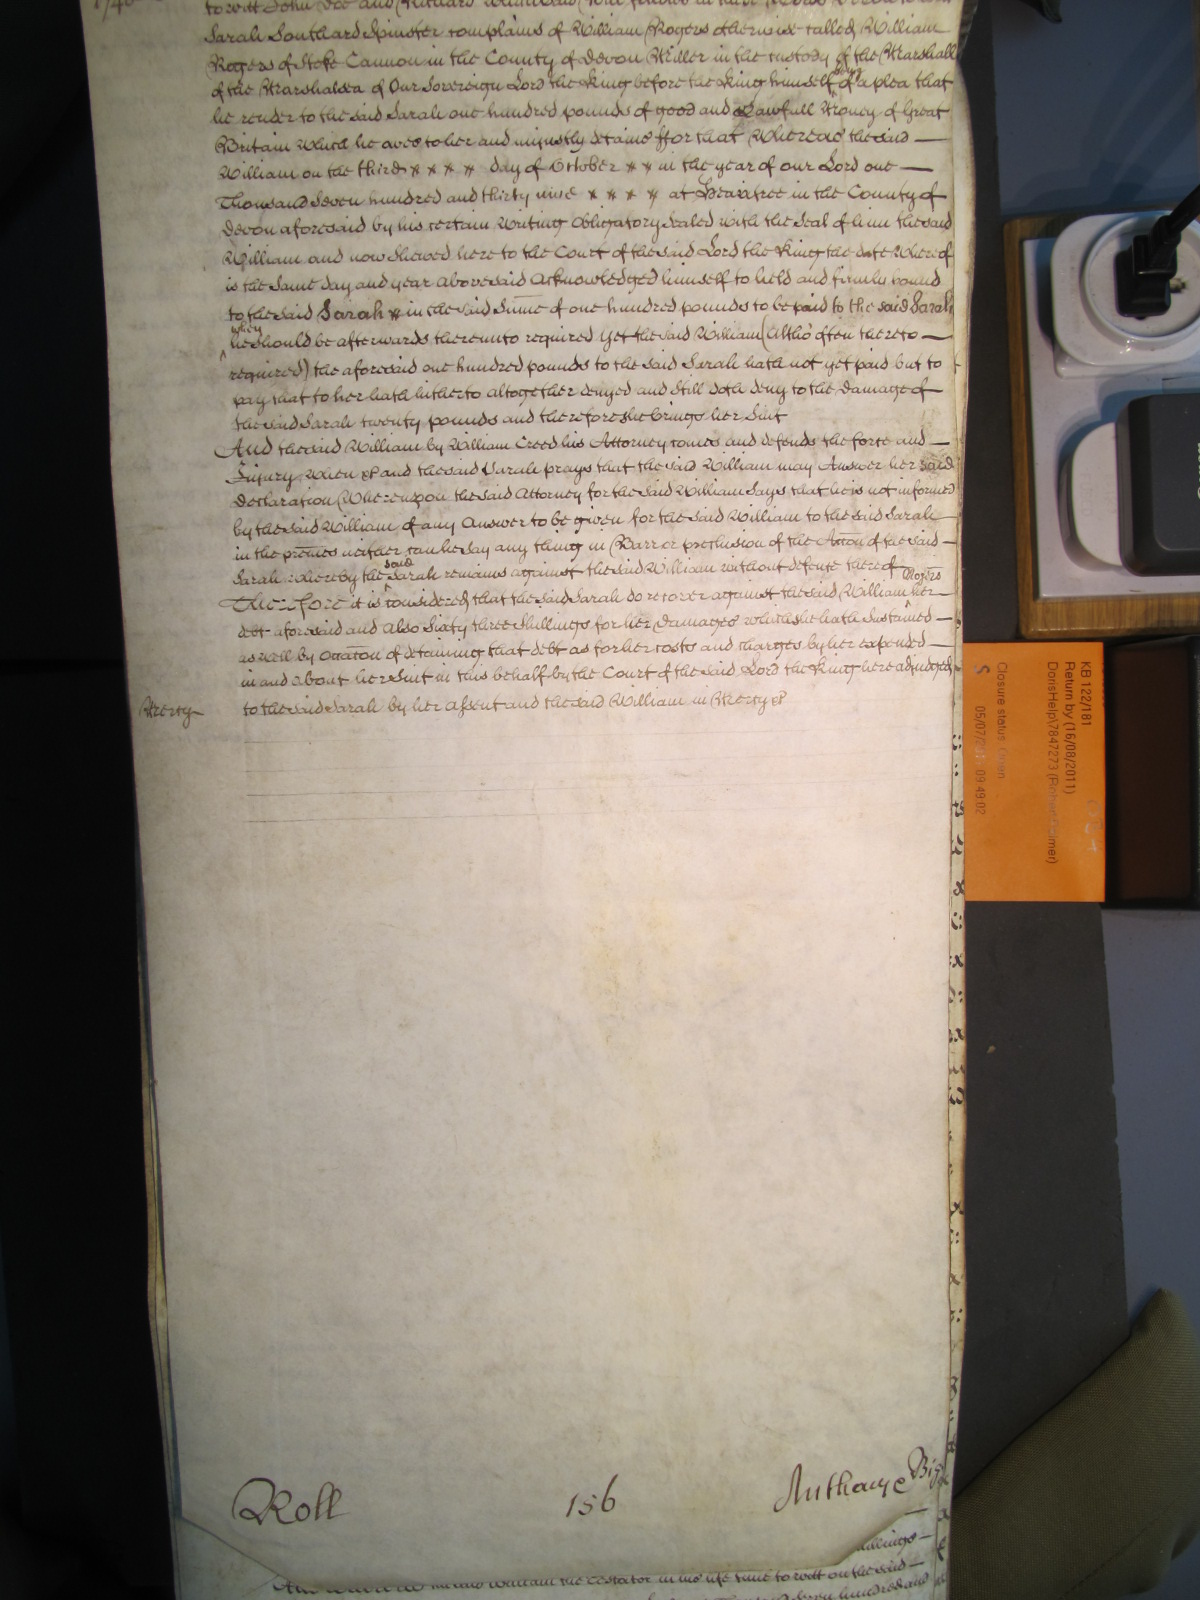 1740
to witt John Doe and Richard
Sarah Southard Spinster complains of William Rogers otherwise called William
Rogers of Stoke Cannon in the County of Devon Miller in the custody of the Marshall
of the Marshalsea of Our Sovereign Lord the King before the King himself of a plea that
he render to the said Sarah one hundred pounds of good and Lawfull Money of Great
Britain which he owes to her and unjustly detains ffor that Whereas the said —
William on the third × × × × day of October × × in the year of our Lord one —
Thousand Seven hundred and thirty nine × × × × at Heavitree in the County of
Devon aforesaid by his certain Writing Obligatory Sealed with the Seal of him the said
William and now shewed here to the Court of the said Lord the King the date whereof
is the Same day and year abovesaid Acknowledged himself to held and firmly bound
to the said Sarah × in the said Summe of one hundred pounds to be paid to the said Sarah
when
he should be afterwards thereunto required Yet the said William (Altho' often thereto —
required) the aforesaid one hundred pounds to the said Sarah hath not yet paid but to
pay that to her hath hitherto altogether denyed and Still doth deny to the Damage of
the said Sarah twenty pounds and therefore she brings her Suit
And the said William by William Creed his Attorney comes and defends the force and —
Injury when &c and the said Sarah prays that the said William may Answer her said
Declaration Whereupon the said Attorney for the said William Says that he is not informed
by the said William of any Answer to be given for the said William to the said Sarah —
in the premes neither can he Say any thing in Barr or preclusion of the Accon of the said —
said
Sarah whereby the Sarah remains against the said William without defence thereof
Rogers
Therefore it is considered that the said Sarah do recover against the said William her —
debt aforesaid and also Sixty three Shillings for her Damages which she hath Sustained —
as well by Occacon of detaining that debt as for her costs and charges by her expended —
in and about her Suit in this behalf by the Court of the said Lord the King here adjudged
Mercy to the said Sarah by her assent and the said William in Mercy &c
Roll 156 Anthonye
Shillings —
William the testator in his life time to witt on the said —
hundred and
KB 122/181
Return by (16/08/2011)
DorisHelp\7847273 (Robert Palmer)
Closure status: Open
S 05/07/2011 09:49:02